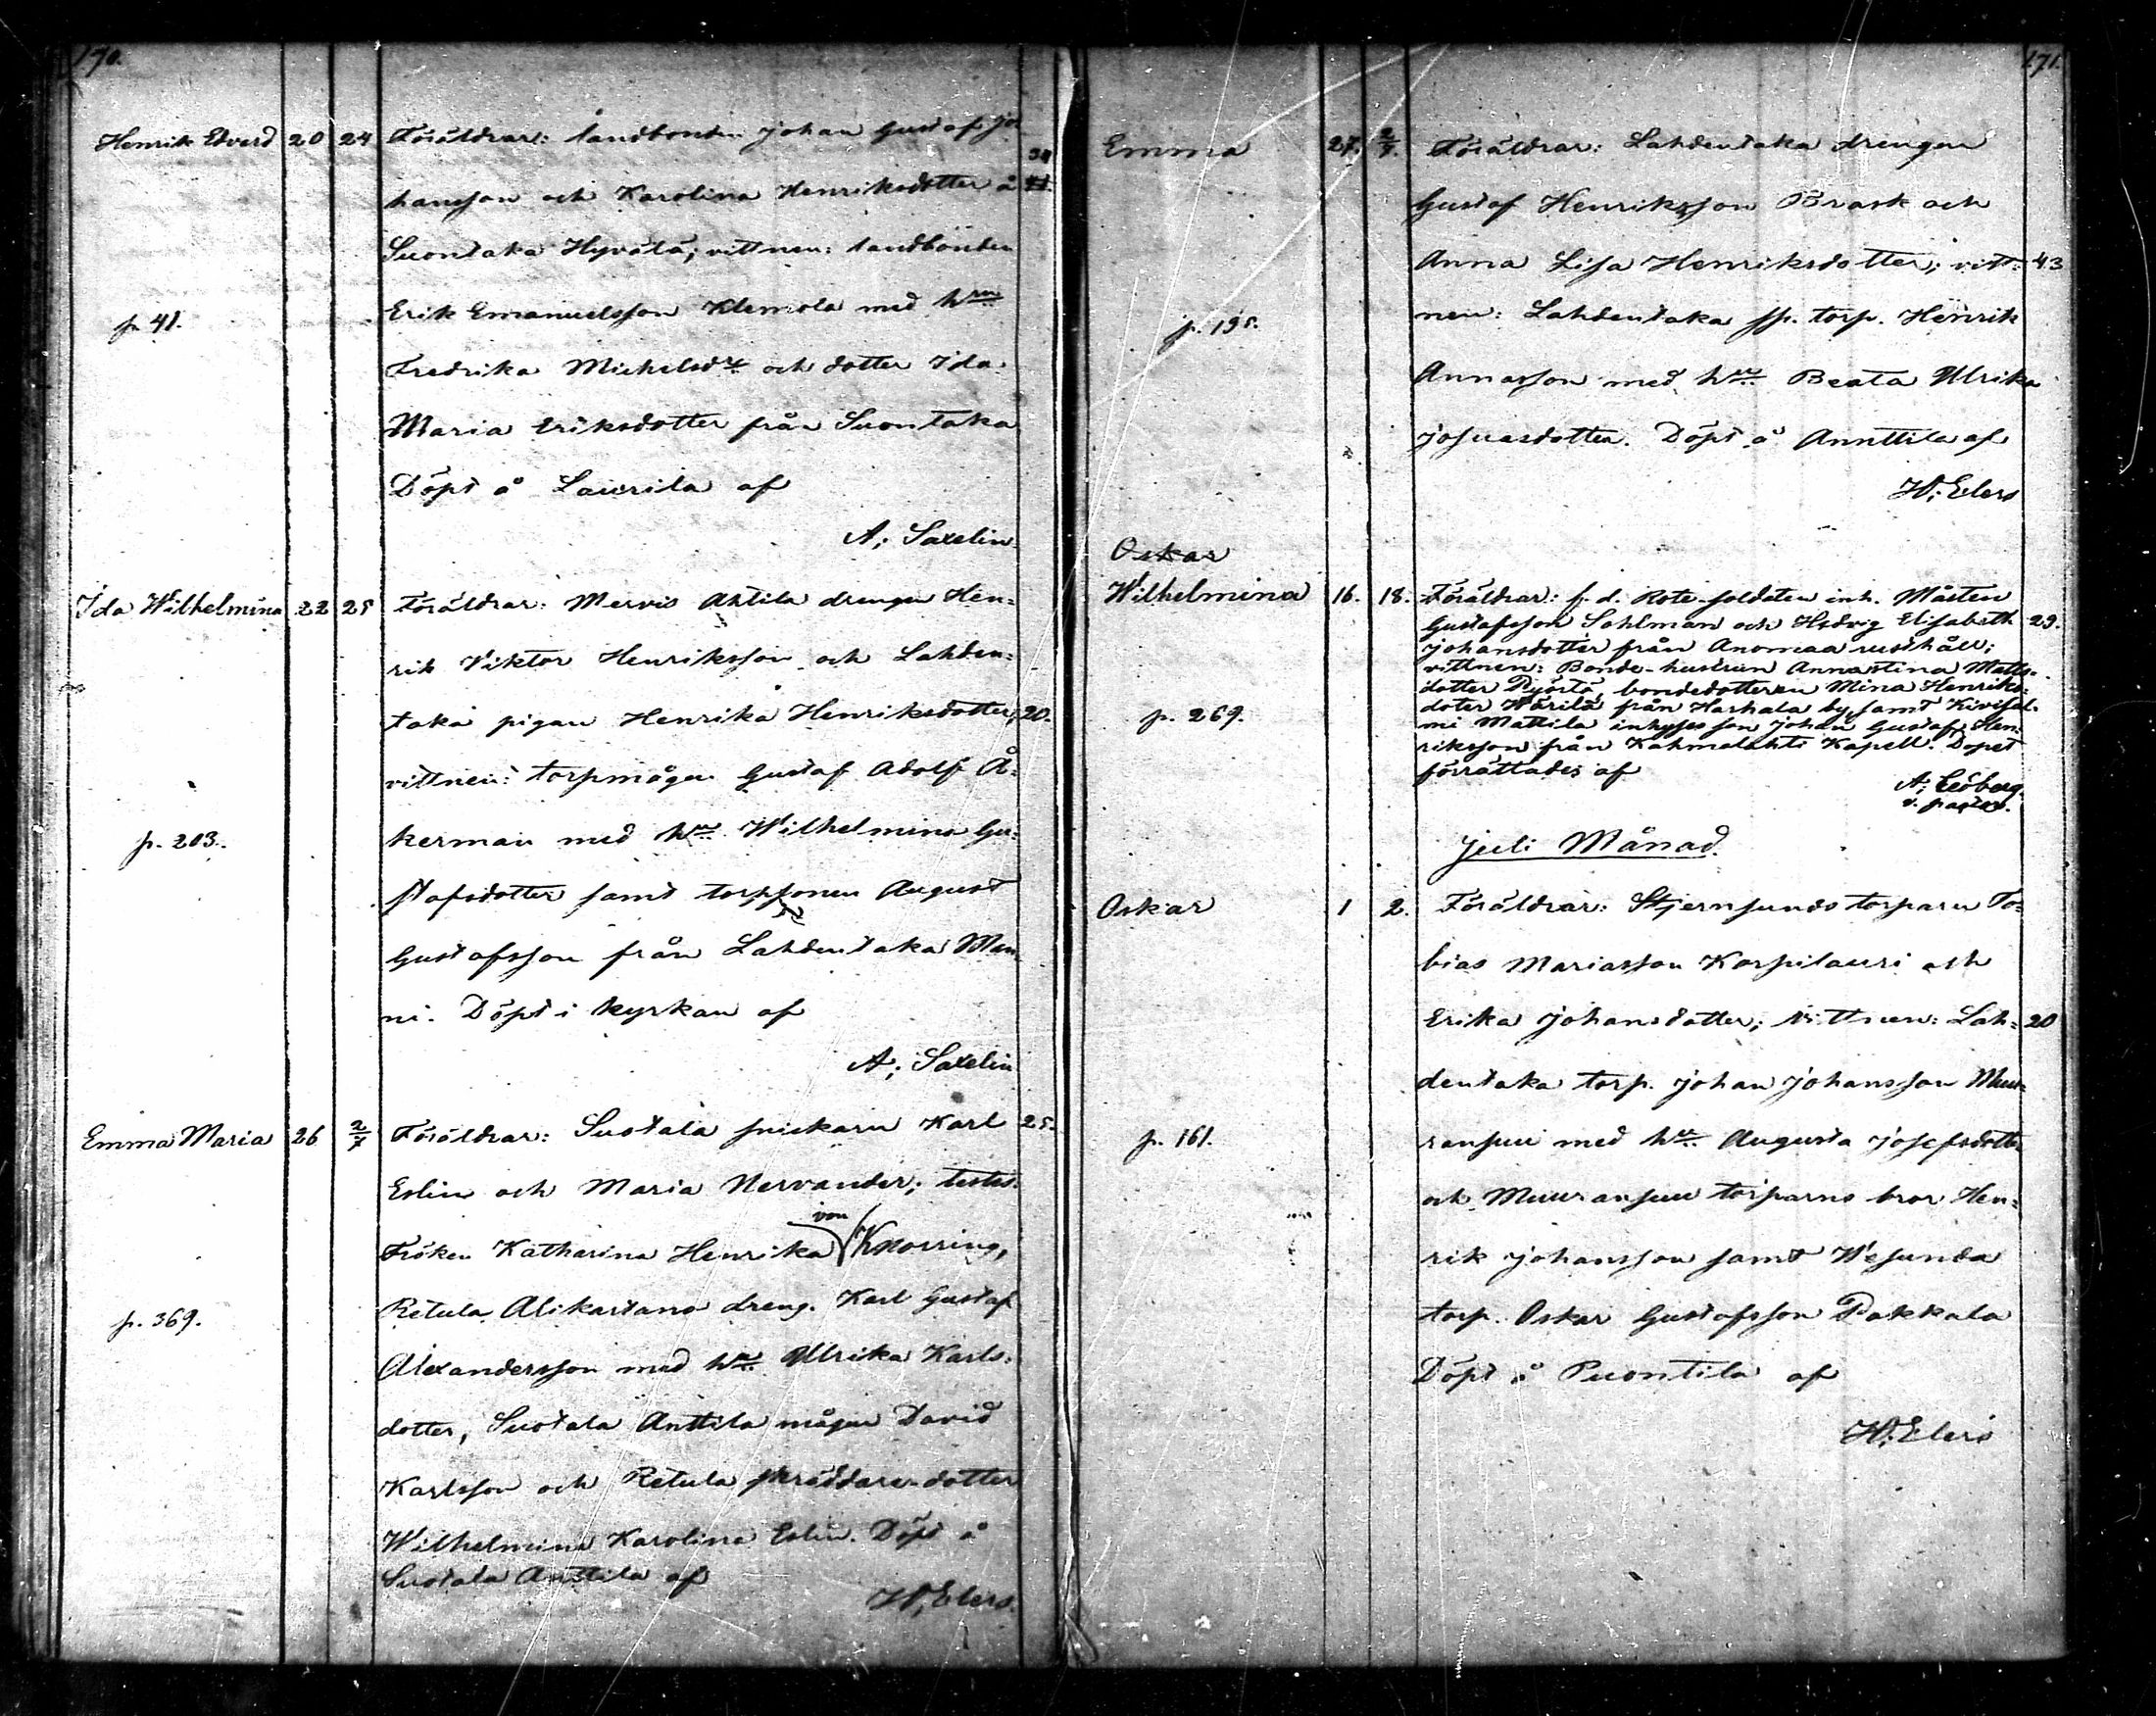 170.
Henrik Edvard 20 24 Föräldrar: landbonden Johan Gustaf Jo
hansson och Karolina Henriksdotter å 34
Suontaka Hyvölä; vittnen: landbonden
Erik Emanuelsson Klemola med hru
p. 41.
Fredrika Michelsdr och dotter Ida
Maria Eriksdotter från Suontaka
Döpt å Laurila af
A; Saxelin
Ida Wilhelmina 22 25 Föräldrar: Mervis Ahtila drengen Hen=
rik Viktor Henriksson och Lahden=
taka pigan Henrika Henriksdotter; 20.
vittnen: torpmågen Gustaf Adolf Å=
p. 203.
kerman med hru Wilhelmina Gu=
stafsdotter samt torpsonen August
Gustafsson från Lahdentaka Man
ni. Döpt i kyrkan af
A; Saxelin
Emma Maria 26 2/7 Föräldrar: Suotala snickarn Karl 25.
Eslin och Maria Nervander; testes:
Fröken Katharina Henrika von Knorring,
Retula Alikartano dreng. Karl Gustaf
p. 369.
Alexandersson med hru Ulrika Karls=
dotter, Suotala Anttila mågen David
Karlsson och Retula skräddare-dotter
Wilhelmina Karolina Eslin. Döpt å
Suotala Anttila af
H; Elers.
171.
Emma 27. 2/7. Föräldrar: Lahdentaka drengen
Gustaf Henriksson Brask och
Anna Lisa Henriksdotter; vitt= 43
nen: Lahdentaka sp. torp. Henrik
p. 195.
Annasson med hru Beata Ulrika
Josuasdotter. Döpt å Annttila af
H; Elers
Oskar
Wilhelmina 16. 18. Föräldrar: f. d. Rote-soldaten inh. Mårten
Gustafsson Sahlman och Hedvig Elisabeth 29.
Johansdotter från Anomaa rusthåll;
vittnen: Bonde-hustrun Annastina Matts=
dotter Pyörtö, bondedotteren Mina Henriks=
doter Wärilä från Harhala by samt Kivisal=
p. 269.
mi Mattila inhyses son Johan Gustaf Hen=
riksson från Kahmalahti Kapell. Dopet
förrättades af
A; Leöberg.
v. pastor.
Juli Månad.
Oskar 1 2. Föräldrar: Stjernsunds torparn To=
bias Mariasson Korpilauri och
Erika Johansdotter; vittnen: Lah= 20
dentaka torp. Johan Johansson Muu=
p. 161.
ransuu med hru Augusta Josefsdotter
och Muuransuu torparns bror Hen=
rik Johansson samt Wesunda
torp. Oskar Gustafsson Pakkala
Döpt å Puontila af
H; Elers